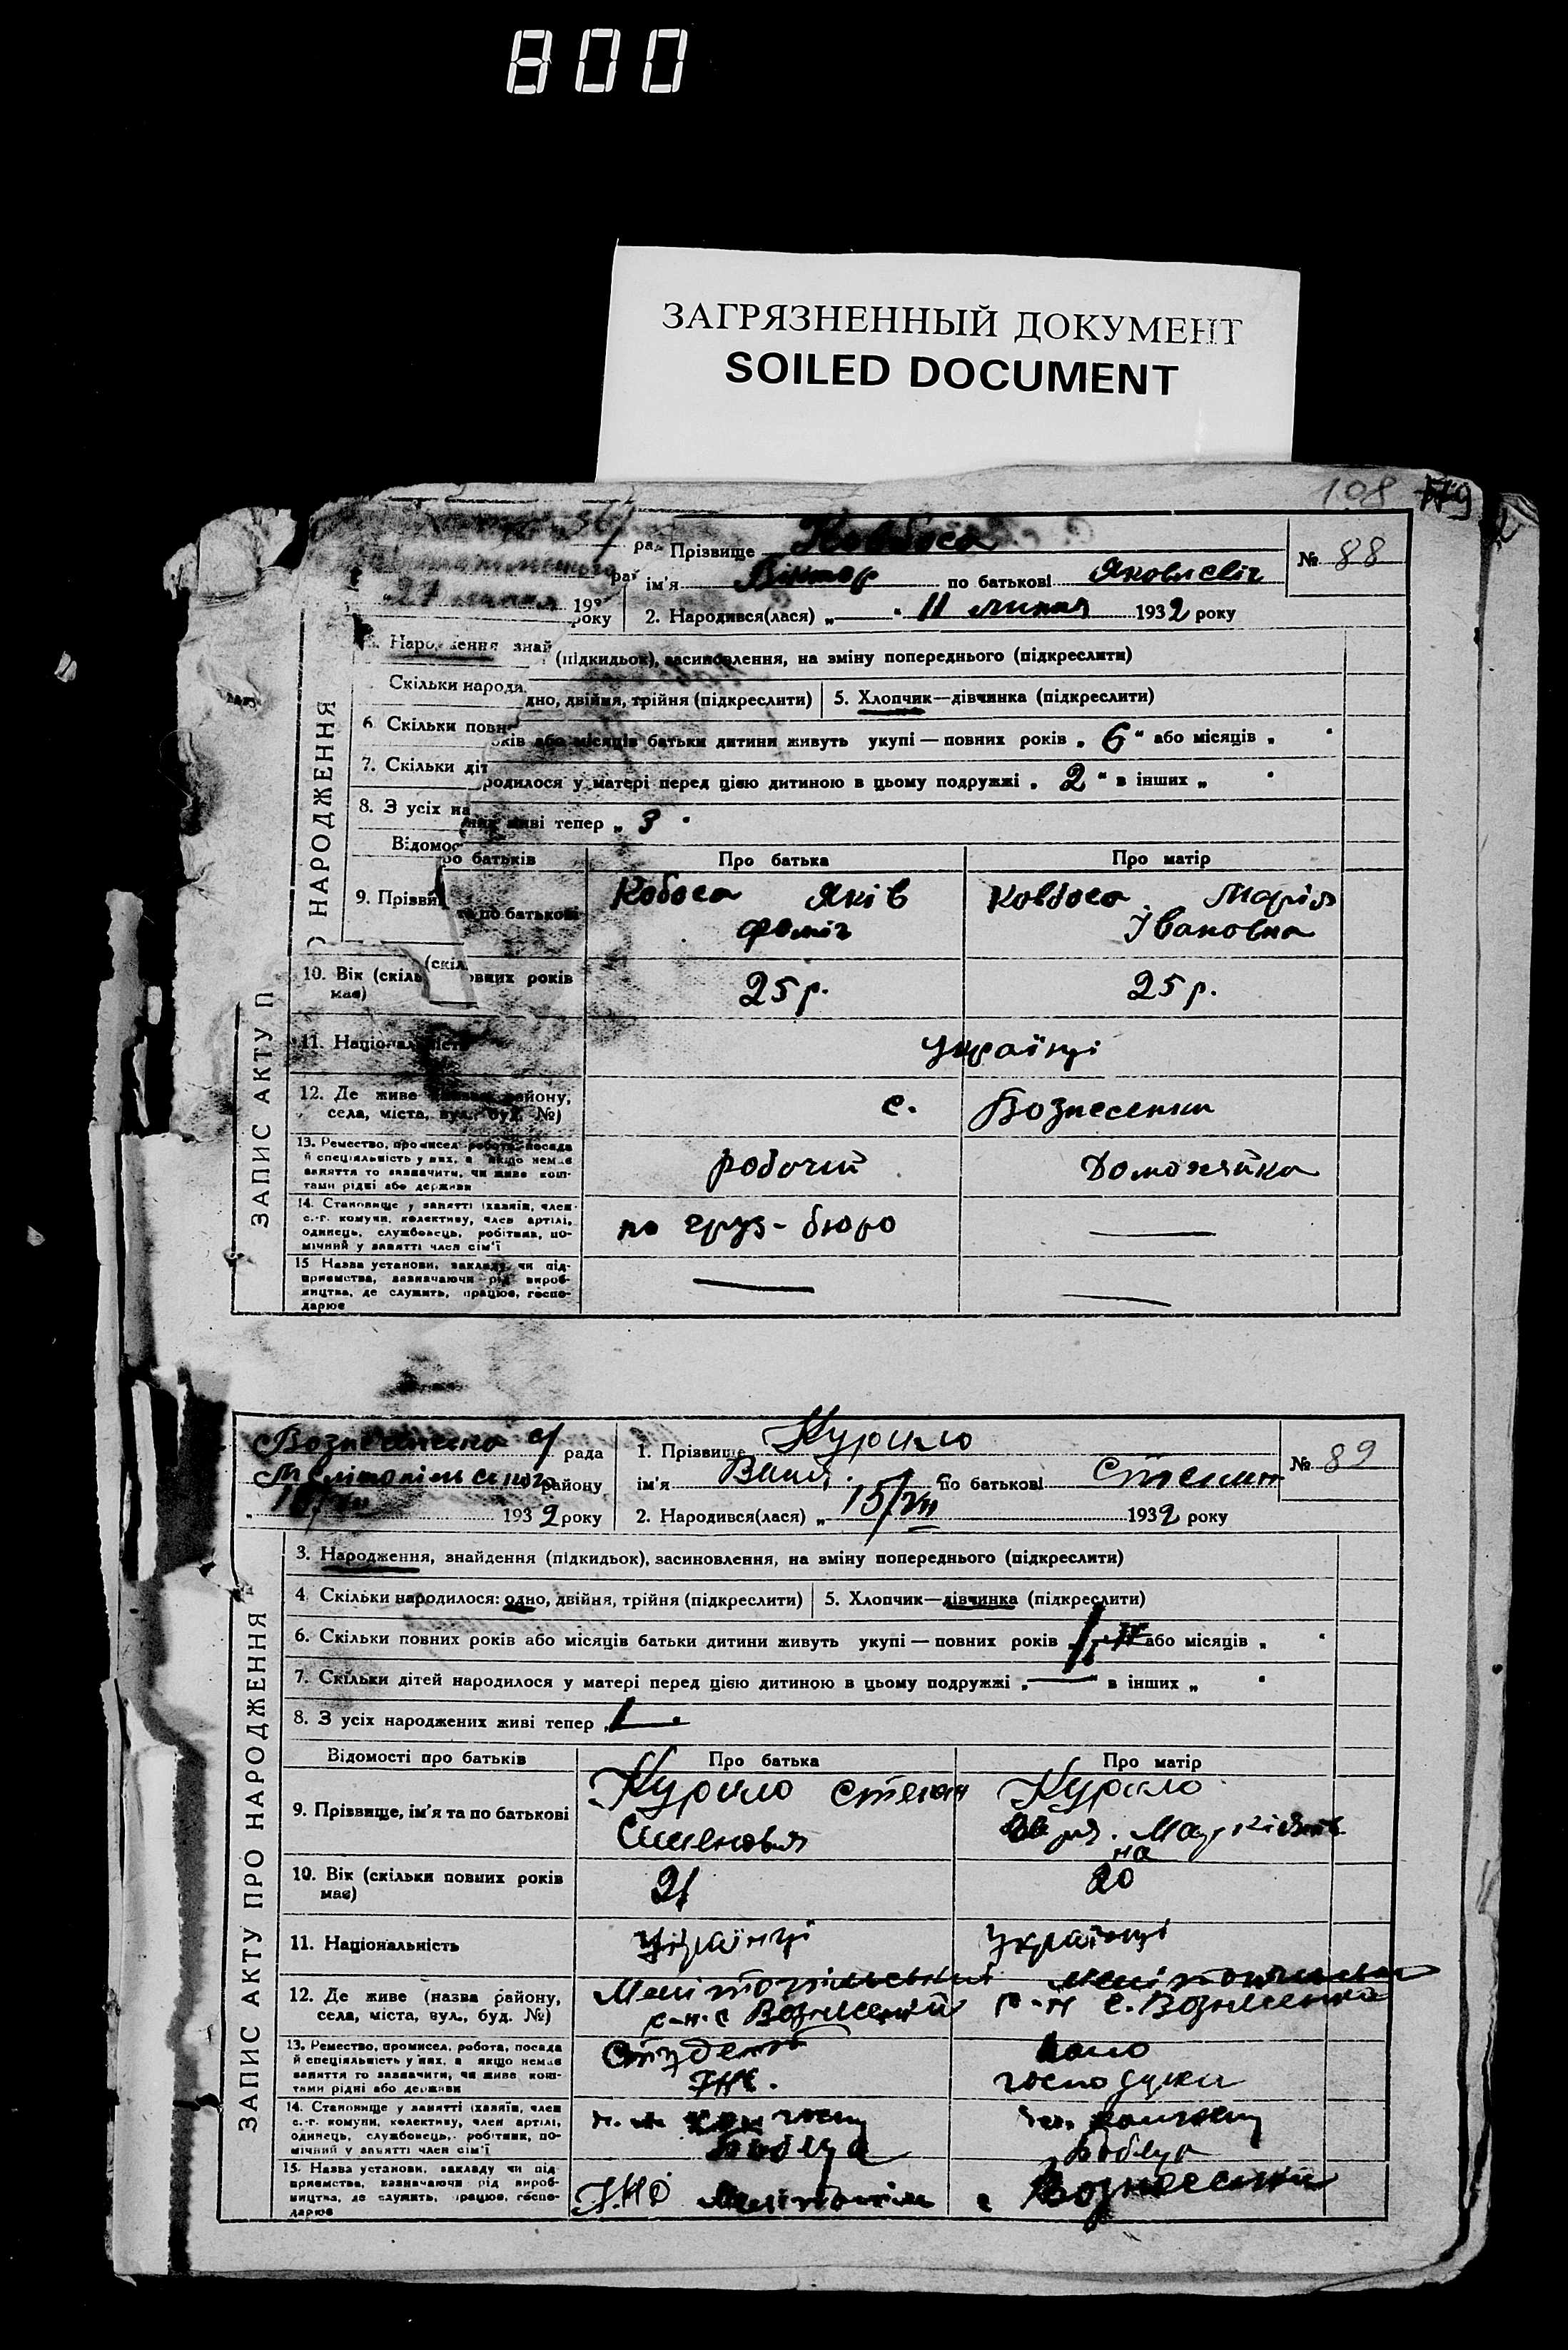 800
ЗАГРЯЗНЕННЫЙ ДОКУМЕНТ
SOILED DOCUMENT
108 179
Прізвище Ковбоса
№ 88
ім'я Віктор по батькові Яковлевіч
27 липня 193
року
2. Народився(лася) „ " 11 липня 1932 року
Народження знай
(підкидьок), засиновлення, на зміну попереднього (підкреслити)
Скільки народи
дно, двійня, трійня (підкреслити) 5. Хлопчик—дівчинка (підкреслити)
6. Скільки повн
років або місяців батьки дитини живуть укупі — повних років „ 6 " або місяців „ "
7. Скільки діт
родилося у матері перед цією дитиною в цьому подружжі „ 2 " в інших „ "
8. З усіх на
живі тепер „ 3 "
Відомос
ро батьків Про батька Про матір
9. Прізви
та по батькові
Кобоса Яків
Фоміч
Ковбоса Марія
Івановна
10. Вік (скіль
(скіл
овних років
має)
25 р. 25 р.
11. Національність
Українці
12. Де живе (назва району,
села, міста, вул., буд. №)
с. Вознесенки
13. Ремество, промисел, робота, посада
й спеціяльність у них, а якщо немає
заняття то зазначити, чи живе кош-
тами рідні або держави
робочий Домохяйка
14. Становище у занятті (хазяїн, член
с.-г. комуни, колективу, член артілі,
одинець, службовець, робітник, по-
мічний у занятті член сім'ї
по груз-бюро —
15 Назва установи, закладу чи під-
приємства, зазначаючи рід вироб-
ництва, де служить, працює, госпо-
дарює
— —
ЗАПИС АКТУ П
О НАРОДЖЕННЯ
Вознесенко с/ рада
1. Прізвище Курило
№ 89
Мелітопільского району
ім'я Валя. по батькові Степан
1932 року
2. Народився(лася) „ 15/VII 1932 року
3. Народження, знайдення (підкидьок), засиновлення, на зміну попереднього (підкреслити)
4. Скільки народилося: одно, двійня, трійня (підкреслити) 5. Хлопчик—дівчинка (підкреслити)
6. Скільки повних років або місяців батьки дитини живуть укупі — повних років „ 1 або місяців „ "
7. Скільки дітей народилося у матері перед цією дитиною в цьому подружжі „ — " в інших „ "
8. З усіх народжених живі тепер „ 1 — "
Відомості про батьків Про батька Про матір
9. Прізвище, ім'я та по батькові
Курило Степан Курило
10. Вік (скільки повних років
має)
21 20
11. Національність
Українці Українці
12. Де живе (назва району,
села, міста, вул., буд. №)
Мелітопільський
р-н. с Вознесенки
Мелітопільськ
р-н с. Вознесенка
13. Ремество, промисел, робота, посада
й спеціяльність у них, а якщо немає
заняття то зазначити, чи живе кош-
тами рідні або держави
Студент
ІНО.
господарки
14. Становище у занятті (хазяїн, член
с.-г. комуни, колективу, член артілі,
одинець, службовець, робітник, по-
мічний у занятті член сім'ї
15. Назва установи, закладу чи під
приємства, зазначаючи рід вироб-
ництва, де служить, працює, госпо-
дарює
ІНО Мелітопіль с Вознесенки
ЗАПИС АКТУ ПРО НАРОДЖЕННЯ